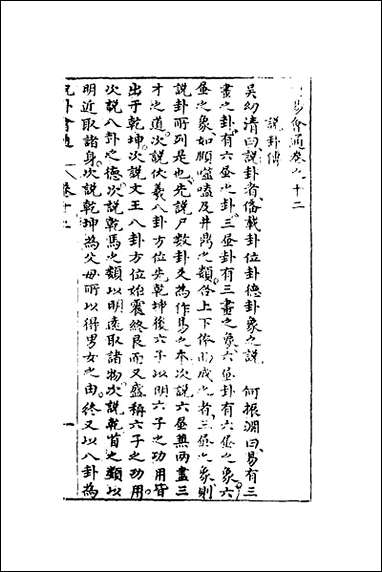 易會通卷之十二
說卦傳
吳幼清曰說卦者備載卦位卦德卦象之說 何振淵曰易有三
畫之卦有六畫之卦三畫卦有三畫之象六畫卦有六畫之象六
畫之象如頤噬嗑及井鼎之類合上下體而成之者三畫之象則
說卦所列是也先說蓍數卦爻為作易之本次說六畫兼兩畫三
才之道次說伏羲八卦方位先乾坤後六子以明六子之功用皆
出于乾坤次說文王八卦方位始震終艮而又盛稱六子之功用
次說八卦之德次說乾馬之類以明遠取諸物次說乾首之類以
明近取諸身次說乾坤為父母所以得男女之由終又以八卦為